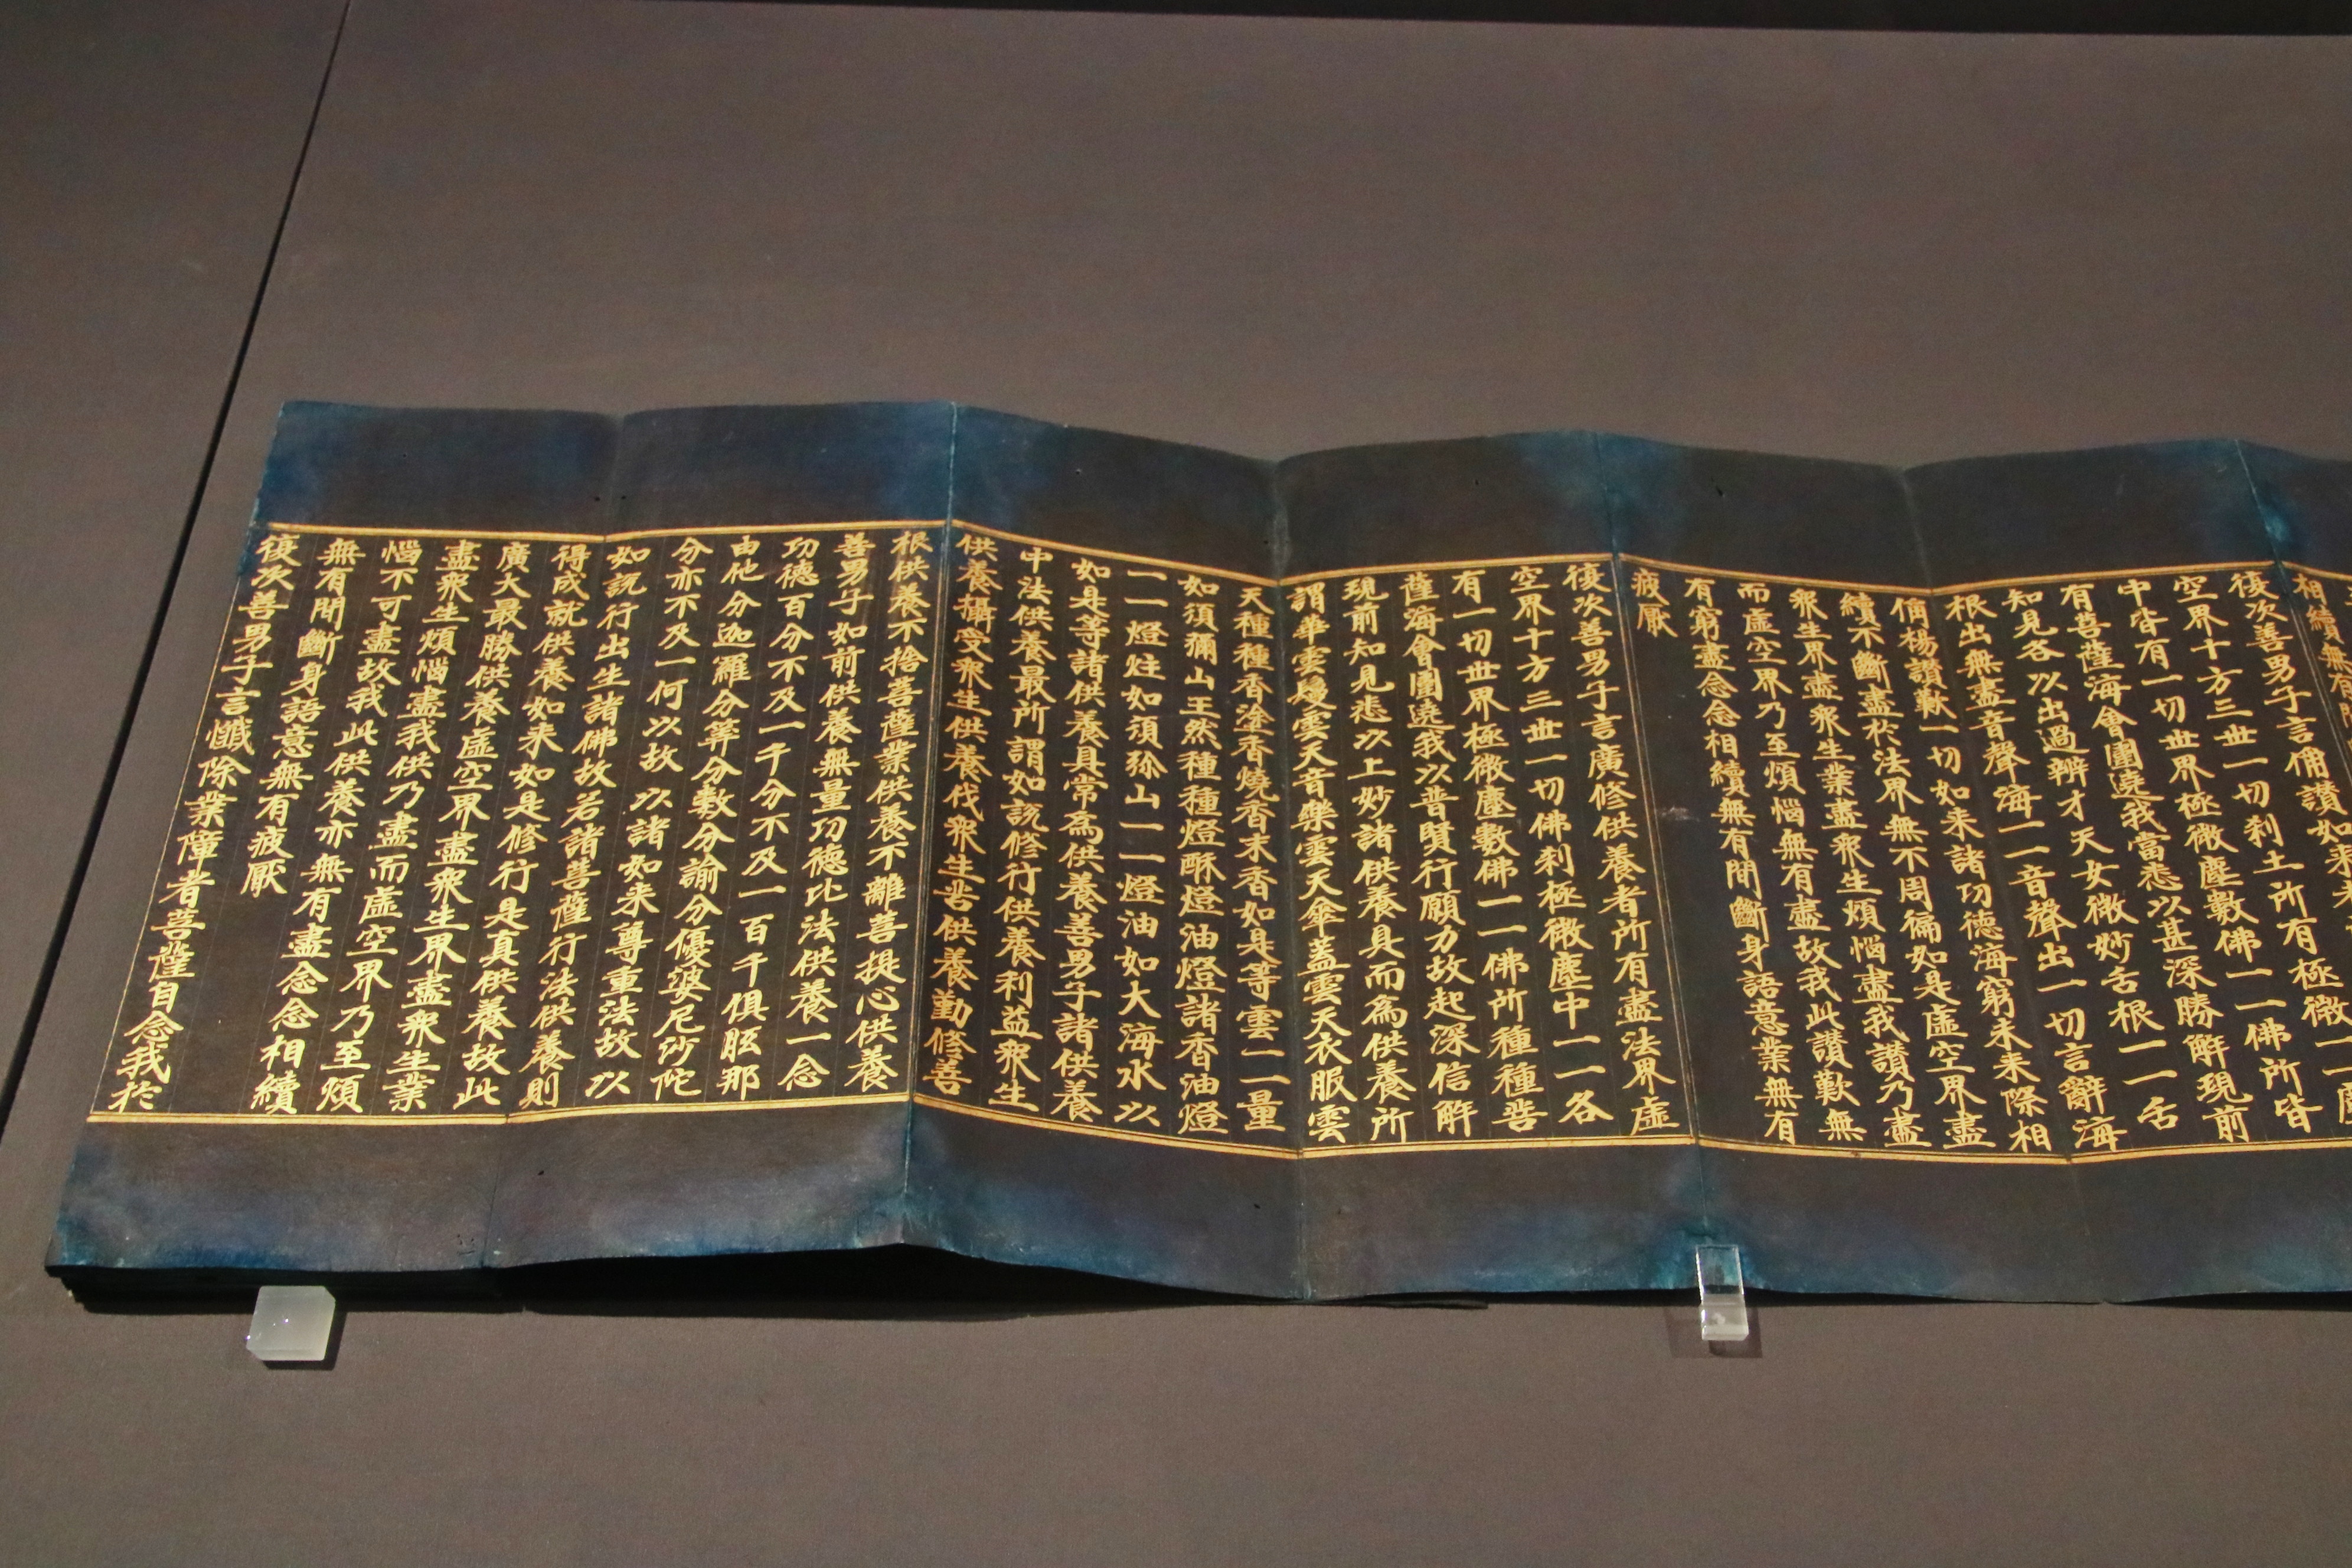 相續無
復次善男子言偁讚如來
空界十方三世一切刹土所有極微一一
中皆有一切世界極微塵數佛一一佛所皆
有菩薩海會圍遶我當悉以甚深勝解現前
知見各以出過辨才天女微妙舌根一一舌
根出無盡音聲海一一音聲出一切言辭海
偁楊讚歎一切如来諸功德海窮未来際相
續不斷盡於法界無不周徧如是虛空界盡
衆生界盡衆生業盡衆生煩惱盡我讚乃盡
而虛空界乃至煩惱無有盡故我此讚歎無
有窮盡念念相續無有間斷身語意業無有
疲厭
復次善男子言廣修供養者所有盡法界虛
空界十方三世一切佛刹極微塵中一一各
有一切世界極微塵數佛一一佛所種種菩
薩海會圍遶我以普賢行願力故起深信解
現前知見悉以上妙諸供養具而為供養所
謂華雲鬘雲天音樂雲天傘蓋雲天衣服雲
天種種香塗香燒香末香如是等雲一一量
如須彌山王然種種燈酥燈油燈諸香油燈
一一燈炷如須弥山一一燈油如大海水以
如是等諸供養具常為供養善男子諸供養
中法供養最所謂如說修行供養利益衆生
供養攝受衆生供養代衆生苦供養勤修善
根供養不捨菩薩業供養不離菩提心供養
善男子如前供養無量功德比法供養一念
功德百分不及一千分不及一百千俱胝那
由他分迦羅分筭分數分諭分優婆尼沙陀
分亦不及一何以故以諸如来尊重法故以
如說行出生諸佛故若諸菩薩行法供養則
得成就供養如来如是修行是真供養故此
廣大最勝供養虛空界盡衆生界盡衆生業
盡衆生煩惱盡我供乃盡而虛空界乃至煩
惱不可盡故我此供養亦無有盡念念相續
無有間斷身語意無有疲厭
復次善男子言懺除業障者菩薩自念我於